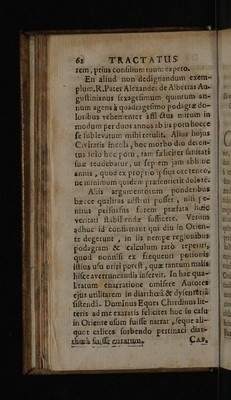 62 TRACTATUS
rem, prius consilium tuum capero.
En aliud non dedignandum exem-
plum, R. Pater Alexander de Albertas Au-
gustinianus sexagesimum quintum an-
num agens à quadragesimo podagræ do-
loribus vehementer afflictus mirum in
modum per duos annos ab isto potu hocce
se sublevatum mihi retulit. Alius hujus
Civitatis incola, hoc morbo diu deten-
tus solo hoc potu, tam feliciter sanitati
suæ studebatur, ut septem jam abhinc
annis, quod ex proprio ipsius ore teneo,
ne minimum quidem præsenserit dolorē.
Aliis argumentorum ponderibus
hæcce qualitas adstrui posset, nisi
nitus persuasus forem præfata hæc
veritati stabiliendæ sufficere. Verùm
adhuc id confirmant qui diu in Orien-
te degerunt, in iis nempe regionibus
podagram & calculum rarò reperiri,
quod nonnisi ex frequenti potionis
istius usu oriri potest, quæ tantum malis
hisce averruncandis inservit. In hac qua-
litatum enarratione omisere Autores
ejus utilitatem in diarrhœa & dysenteria
sistendâ. Dominus Eques Chardinus lit-
teris ad me exaratis felicites hoc in casu
in Oriente usum fuisse narrat, seque ali-
quot calices sorbendo pertinaci diar-
rhœâ fuisse curatum.
CAP.